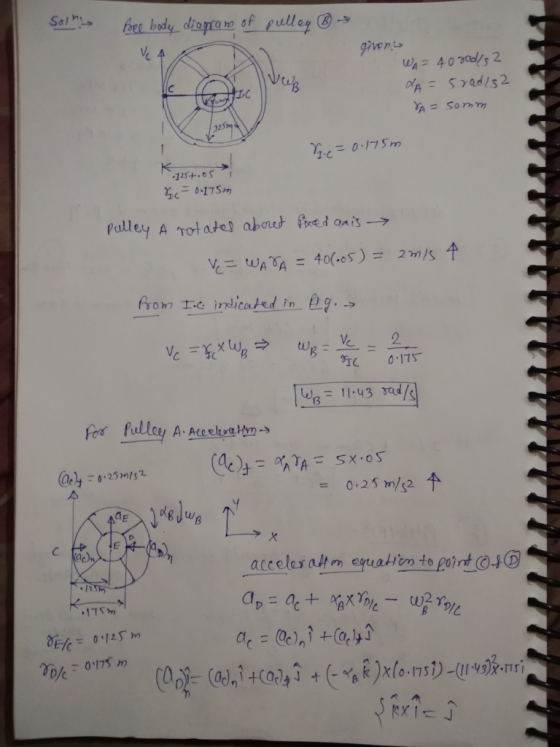 Solⁿ:→ Free body diagram of pulley Ⓑ →
given:→
ω_A = 40 rad/s2
α_A = 5 rad/s2
r_A = 50mm
V_C
ω_B
C
I.C
.125m
.125+.05
r_IC = 0.175m
r_I-C = 0.175m
Pulley A rotates about fixed axis →
V_C = ω_A r_A = 40(.05) = 2m/s ↑
From I.C indicated in fig. →
V_C = r_IC × ω_B ⇒ ω_B = V_C / r_IC = 2 / 0.175
ω_B = 11.43 rad/s
For Pulley A. Acceleration →
(a_C)_t = α_A r_A = 5×.05
= 0.25 m/s2 ↑
(a_C)_t = 0.25m/s2
a_E
α_B ↓ ω_B
y
x
C
(a_C)_n
E
D
(a_D)_n
.125m
.175m
acceleration equation to point Ⓒ & Ⓓ
a_D = a_C + α_B × r_D/C − ω_B² r_D/C
a_C = (a_C)_n î + (a_C)_t ĵ
r_E/C = 0.125 m
r_D/C = 0.175 m
(a_D)_n î = (a_C)_n î + (a_C)_t ĵ + (−α_B k̂) × (0.175î) − (11.43)²×.175î
{ k̂ × î = ĵ